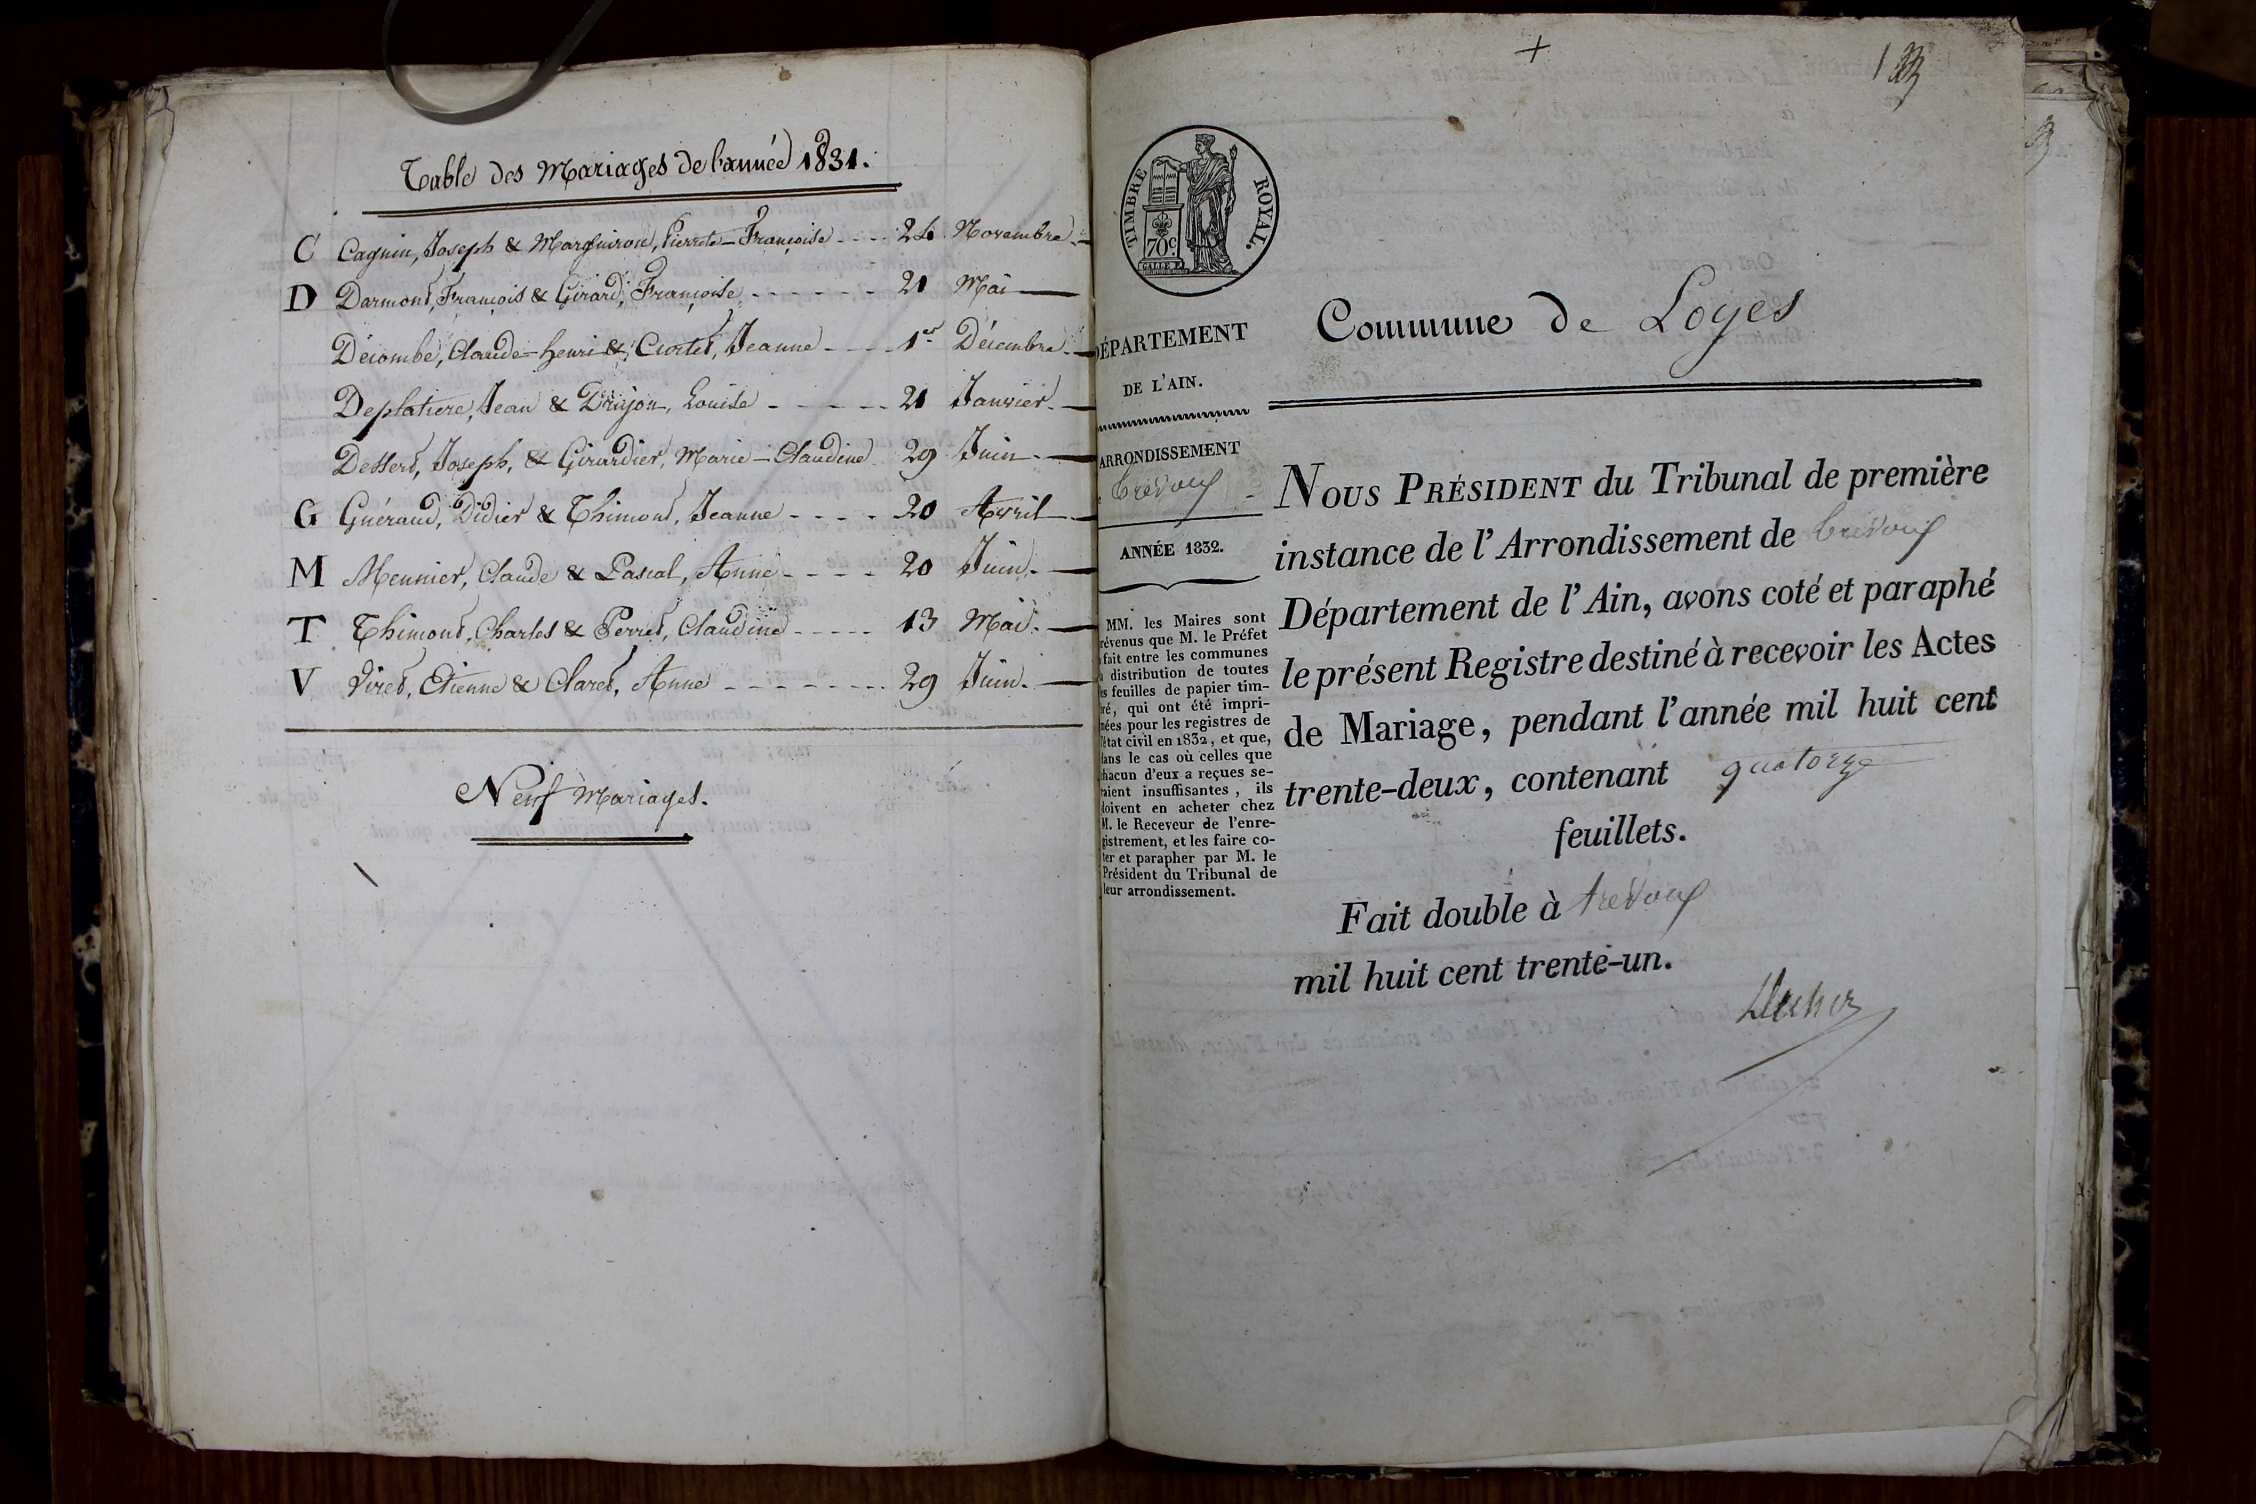 Table des Mariages de l'année 1831.
C Cagnin, Joseph & Marguiron, Pierrette-Françoise 24 Novembre
D Darmont, François & Girard, Françoise 21 Mai
Décombe, Claude-henri & Crottet, Jeanne 1er Décembre
Deplatiere, Jean & Drujon, Louise 21 Janvier
Dessert, Joseph, & Girardier, Marie-Claudine 29 Juin
G Guéraud, Didier & Thimont, Jeanne 20 Avril
M Meunier, Claude & Pascal, Anne 20 Juin
T Thimont, Charles & Perret, Claudine 13 Mai
V Viret, Etienne & Claret, Anne 29 Juin
Neuf Mariages.
1
TIMBRE ROYAL.
70 c.
DÉPARTEMENT
DE L'AIN.
ARRONDISSEMENT
trévoux
ANNÉE 1832.
MM. les Maires sont
révenus que M. le Préfet
fait entre les communes
distribution de toutes
s feuilles de papier tim-
ré, qui ont été impri-
nées pour les registres de
état civil en 1832, et que,
ans le cas où celles que
hacun d'eux a reçues se-
aient insuffisantes, ils
doivent en acheter chez
M. le Receveur de l'enre-
gistrement, et les faire co-
ter et parapher par M. le
Président du Tribunal de
leur arrondissement.
Commune de Loyes
NOUS PRÉSIDENT du Tribunal de première
instance de l'Arrondissement de trévoux
Département de l'Ain, avons coté et paraphé
le présent Registre destiné à recevoir les Actes
de Mariage, pendant l'année mil huit cent
trente-deux, contenant quatorze
feuillets.
Fait double à trévoux
mil huit cent trente-un.